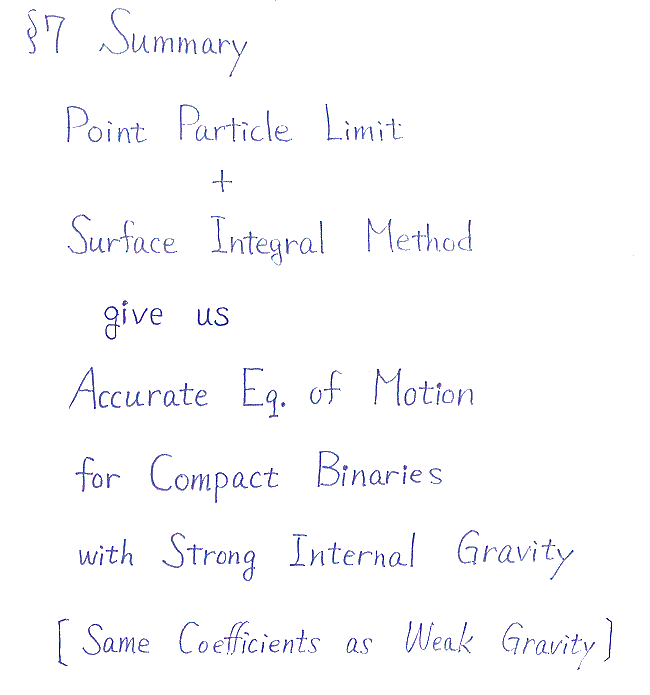 §7 Summary
Point Particle Limit
+
Surface Integral Method
give us
Accurate Eq. of Motion
for Compact Binaries
with Strong Internal Gravity
[ Same Coefficients as Weak Gravity ]